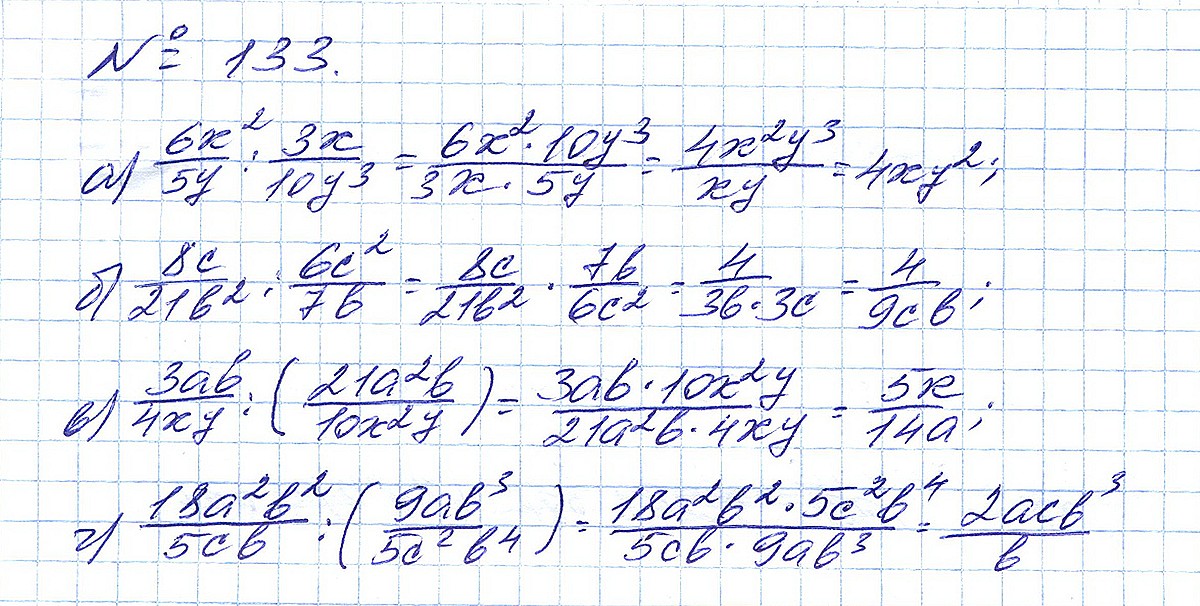 № 133.
а) 6x²/5y : 3x/10y³ = 6x²·10y³/3x·5y = 4x²y³/xy = 4xy²;
б) 8c/21b² : 6c²/7b = 8c/21b² · 7b/6c² = 4/3b·3c = 4/9cb;
в) 3ab/4xy : (21a²b/10x²y) = 3ab·10x²y/21a²b·4xy = 5x/14a;
г) 18a²b²/5cb : (9ab³/5c²b⁴) = 18a²b²·5c²b⁴/5cb·9ab³ = 2acb³/b